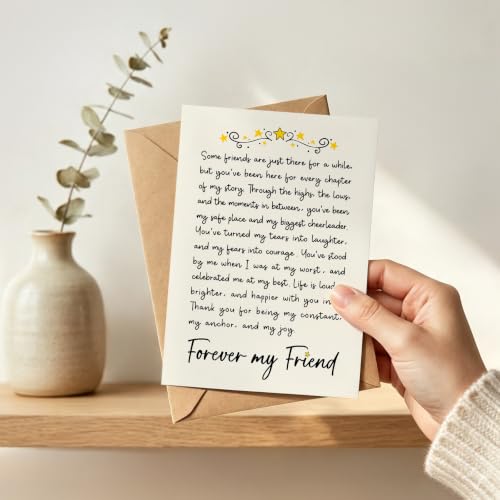 Some friends are just there for a while,
but you've been here for every chapter
of my story. Through the highs, the lows,
and the moments in between, you've been
my safe place and my biggest cheerleader.
You've turned my tears into laughter,
and my fears into courage. You've stood
by me when I was at my worst, and
celebrated me at my best. Life is
brighter, and happier with you in
Thank you for being my constant,
my anchor, and my joy.
Forever my Friend